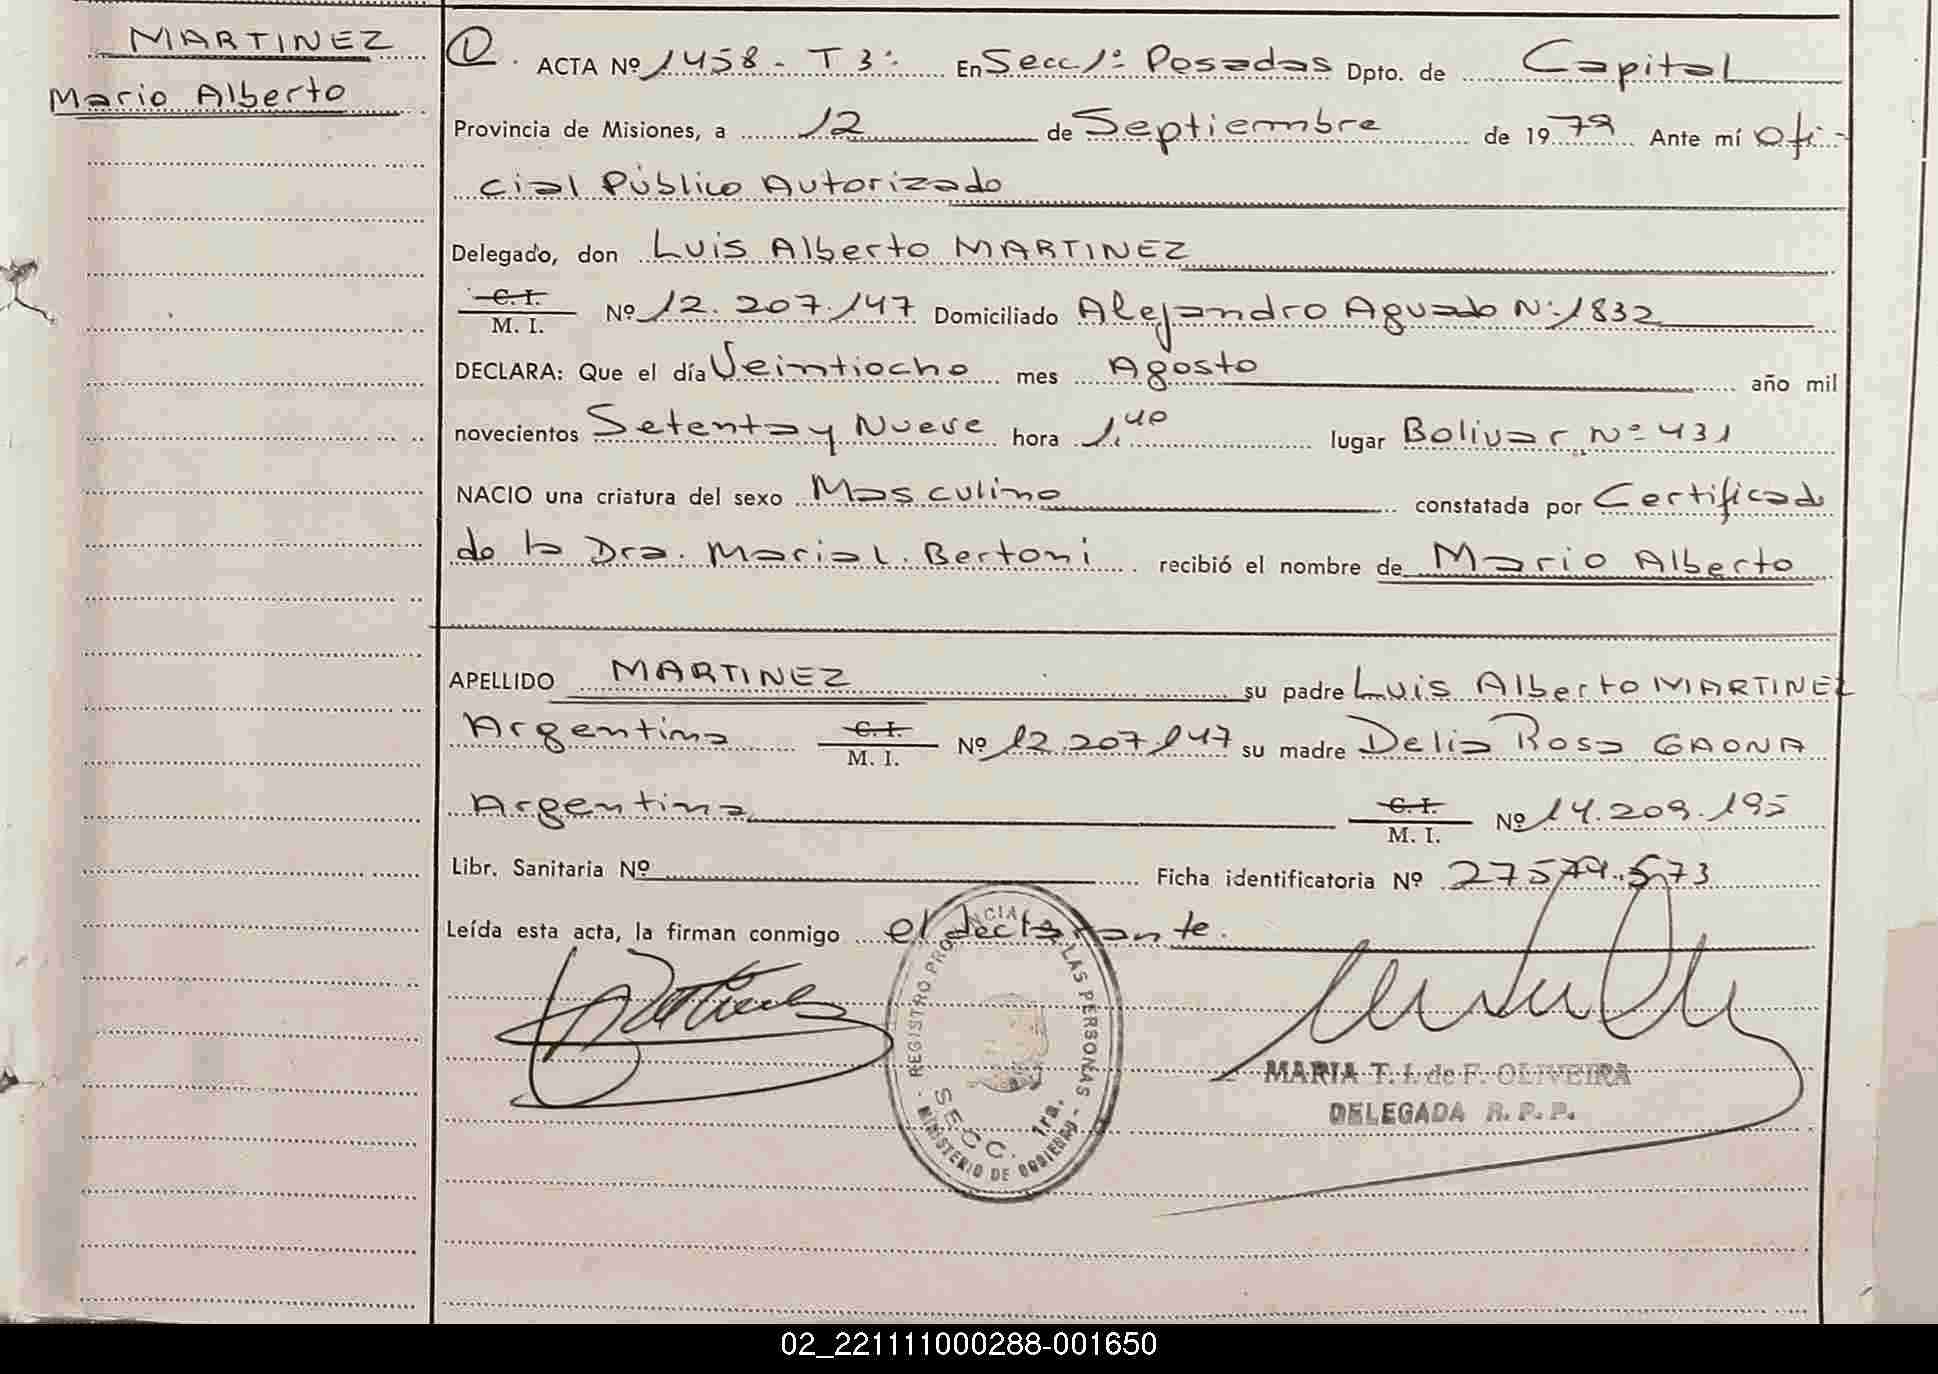 MARTINEZ
Mario Alberto
1. ACTA Nº 1458 - T 3º En Secc 1º Posadas Dpto. de Capital
Provincia de Misiones, a 12 de Septiembre de 1979 Ante mí Ofi-
cial Público Autorizado
Delegado, don Luis Alberto MARTINEZ
C. I.
M. I. Nº 12.207.147 Domiciliado Alejandro Aguado Nº 1832
DECLARA: Que el día Veintiocho mes Agosto año mil
novecientos Setenta y Nueve hora 1.40 lugar Bolivar Nº 431
NACIO una criatura del sexo Masculino constatada por Certificado
de la Dra. Maria L. Bertoni recibió el nombre de Mario Alberto
APELLIDO MARTINEZ su padre Luis Alberto MARTINEZ
Argentina C. I.
M. I. Nº 12.207.147 su madre Delia Rosa GAONA
Argentina C. I.
M. I. Nº 14.209.195
Libr. Sanitaria Nº Ficha identificatoria Nº 27579.573
Leída esta acta, la firman conmigo el declarante.
REGISTRO PROVINCIAL DE LAS PERSONAS
SECC. 1ra.
MINISTERIO DE GOBIERNO
MARIA T. I. de F. OLIVEIRA
DELEGADA R. P. P.
02_221111000288-001650